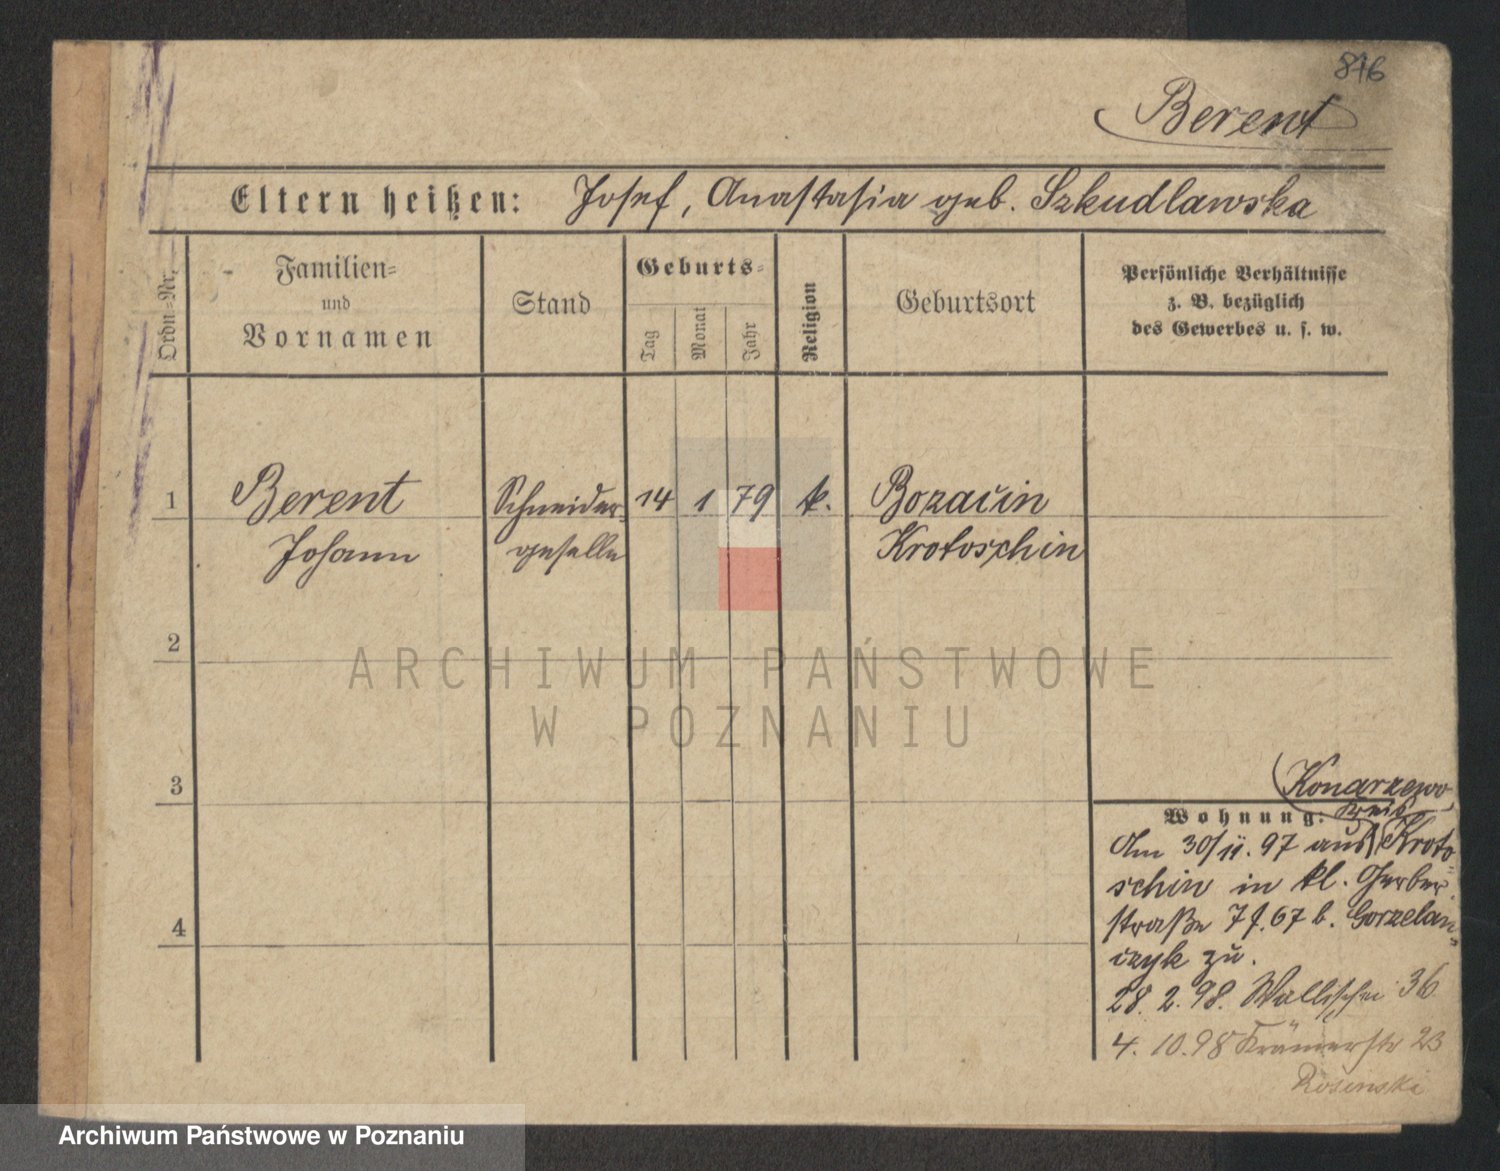 846
Berent
Eltern heißen: Josef, Anastasia geb. Szkudlawska
Ordn=Nr.
Familien=
und
Vornamen
Stand
Geburts=
Tag
Monat
Jahr
Religion
Geburtsort
Persönliche Verhältnisse
z. B. bezüglich
des Gewerbes u. s. w.
1
Berent
Johann
Schneider=
geselle
14 1 79 k.
Bozacin
Krotoschin
2
ARCHIWUM PAŃSTWOWE
W POZNANIU
3
Konarzewo
Wohnung:
Am 30/11. 97 aus Kroto=
schin in kl. Gerber
straße 7 f. 67 b. Gorzelan=
czyk zu.
28. 2. 98. Wallischei 36
4
4. 10. 98 Krämerstr 23
Rosenski
Archiwum Państwowe w Poznaniu